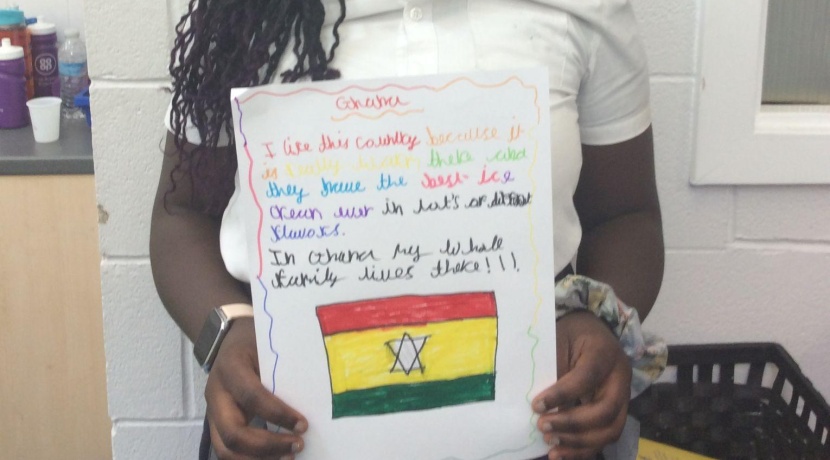 Ghana
I like this country because it
is really warm there and
they have the best ice
cream ever in lot's of different
flavors.
In Ghana my whole
family lives there!!!